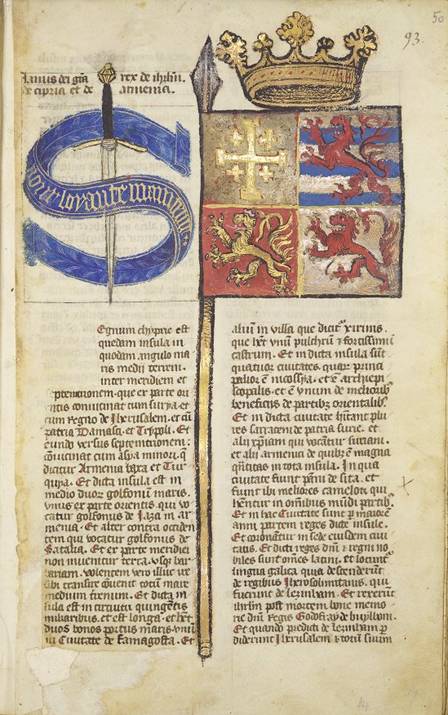 93.
50
Janus dei gra rex de ihrlm.
de cipria et de armenia.
pour loyaute maintenir
Egnum chypre est
quedam insula in
quodam angulo ma
ris medij terreni.
inter meridiem et
ptemtrionem. que ex parte ori
entis conuicinat cum suria et
cum regno de Iherusalem. et cū
patria Damasci. et Tripoli. Et
eundo versus septemtrionem:
conuicinat cum asya minori. q̄
dicitur Armenia bara et Tur
quya. Et dicta insula est in
medio duor golfonum maris.
vnus ex parte orientis. qui vo
catur golfonus de Laza in ar
menia. Et alter contra occiden
tem qui vocatur golfonus de
Satalia. Et ex parte meridiei
non inuenitur terra. vsqz bar
bariam. volentem vero illuc ire
ibi transire oportet totum mare
medium terreum. Et dicta in
sula est in circuitu quingētis
miliaribus. et est longa. et h̄et
duos bonos portus maris. vnū
in Ciuitate de famagosta. Et
aliū in villa que dicit' xirinis.
que h̄t vnū pulchrū & fortissimū
castrum. Et in dicta insula sūt
quatuor ciuitates. quar princi
palior ē nicossya. et ē archiepi
scopalis. et ē vnum de meliorib
beneficijs de partibz orientalib'.
Et in dicta ciuitate hītant plu
res sarraceni de patria surie. et
alii xp̄iani qui vocātur suriani.
et alii armenici de quibz ē magna
q̄ntitas in tota insula. In qua
ciuitate fiunt pāni de sita. et
fiunt ibi meliores camelotī qui
h̄entur in om̄ibus mūdi partib'.
Et in hac ciuitate sunt p maiorē
anni partem reges dicte insule.
Et coronātur in sede eiusdem ciui
tatis. Et dicti reges dn̄i & regni no
biles sunt om̄es latini. et locūntr
lingua galica. quia descenderūt
de regibus Iherosolimitanis. qui
fuerunt de lezinham. Et rexerūt
ihrlm post mortem bone memo
rie dn̄i Regis Godefray de buyllon.
Et quando predicti de lezinham p
diderunt Iherusalem & totū surim